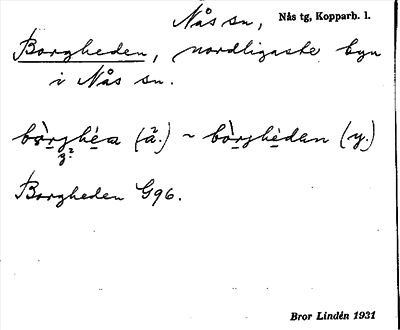 Nås sn, Nås tg, Kopparb. l.
Borgheden, nordligaste byn
i Nås sn.
bòrghéa (ä.) ~ bòrghèdan (y.)
g?
Borgheden G96.
Bror Lindén 1931